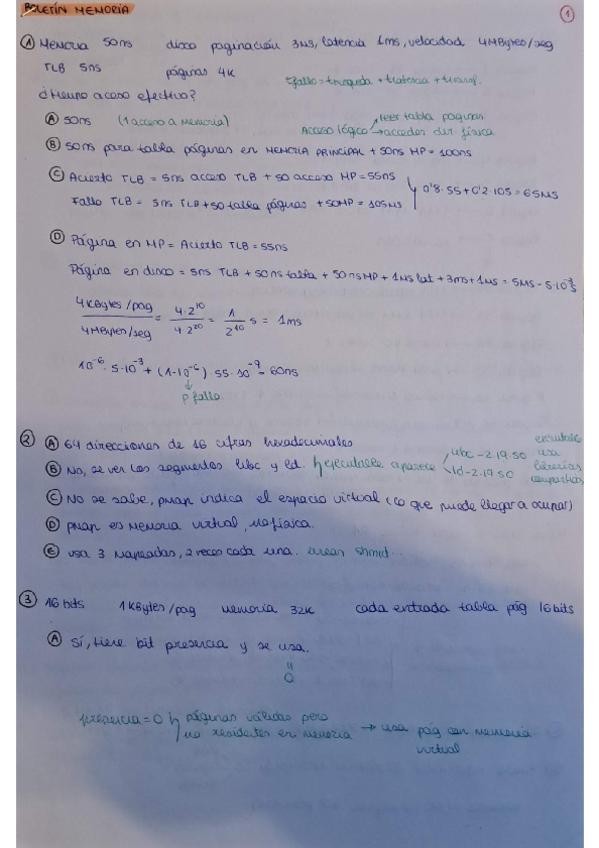 BOLETÍN MEMORIA
1
① Memoria 50ns disco paginación 3ms, latencia 1ms, velocidad 4MBytes/seg
TLB 5ns páginas 4K tfallo = tbusqueda + tlatencia + ttransf.
¿Tiempo acceso efectivo?
Ⓐ 50ns (1 acceso a memoria) Acceso lógico → leer tabla paginas
→ acceder dir. física
Ⓑ 50ns para tabla páginas en MEMORIA PRINCIPAL + 50ns MP = 100ns
Ⓒ Acierto TLB = 5ns acceso TLB + 50 acceso MP = 55ns
Fallo TLB = 5ns TLB + 50 tabla páginas + 50MP = 105ns
0'8·55 + 0'2·105 = 65ns
Ⓓ Página en MP = Acierto TLB = 55ns
Página en disco = 5ns TLB + 50ns tabla + 50ns MP + 1ms lat + 3ms + 1ms = 5ms = 5·10⁻³s
4KBytes/pag / 4MBytes/seg = 4·2¹⁰ / 4·2²⁰ = 1 / 2¹⁰ s = 1ms
10⁻⁶·5·10⁻³ + (1-10⁻⁶)·55·10⁻⁹ = 60ns
↓
P fallo
② Ⓐ 64 direcciones de 16 cifras hexadecimales
Ⓑ No, se ven los segmentos libc y ld. ejecutable aparece libc-2.19.so
ld-2.19.so
ejecutable
usa
librerías
compartidas
Ⓒ No se sabe, pmap indica el espacio virtual (lo que puede llegar a ocupar)
Ⓓ pmap es memoria virtual, no física.
Ⓔ usa 3 mapeadas, 2 veces cada una. shmid...
③ 16 bits 1KBytes/pag memoria 32K cada entrada tabla pág 16 bits
Ⓐ Sí, tiene bit presencia y se usa.
=
0
presencia = 0 páginas válidas pero
no residentes en memoria → usa pág con memoria
virtual